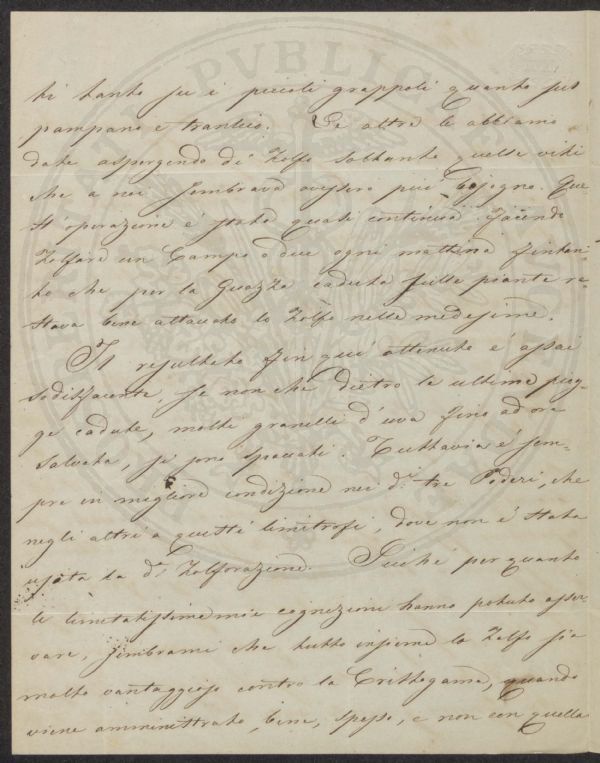 ti tanto su i piccoli grappoli quanto sul
pampano e tranlcio. Le altre le abbiamo
date aspergendo di Zolfo soltanto quelle viti
che a noi sembrava avessero più bisogno. Que
st'operazione è stata quasi continua facendo
Zolfare un Campo o due ogni mattina fintan-
to che per la Guazza caduta sulle piante re-
stava bene attaccato lo Zolfo nelle medesime.
Il resultato fin quì ottenuto è assai
sodisfacente, se non che dietro le ultime piog-
ge cadute, molti granelli d'uva fino ad ora
salvata, si sono spaccati. Tuttavia è sem-
pre in migliore condizione nei d.i tre Poderi, che
negli altri a questi limitrofi, dove non è stata
usata la d.a Zolforazione. Sicchè per quanto
le limitatissime mie cognizioni hanno potuto osser-
vare, sembrami che tutto insieme lo Zolfo sia
molto vantaggioso contro la Crittogama, quando
viene amministrato bene, spesso, e non con quella